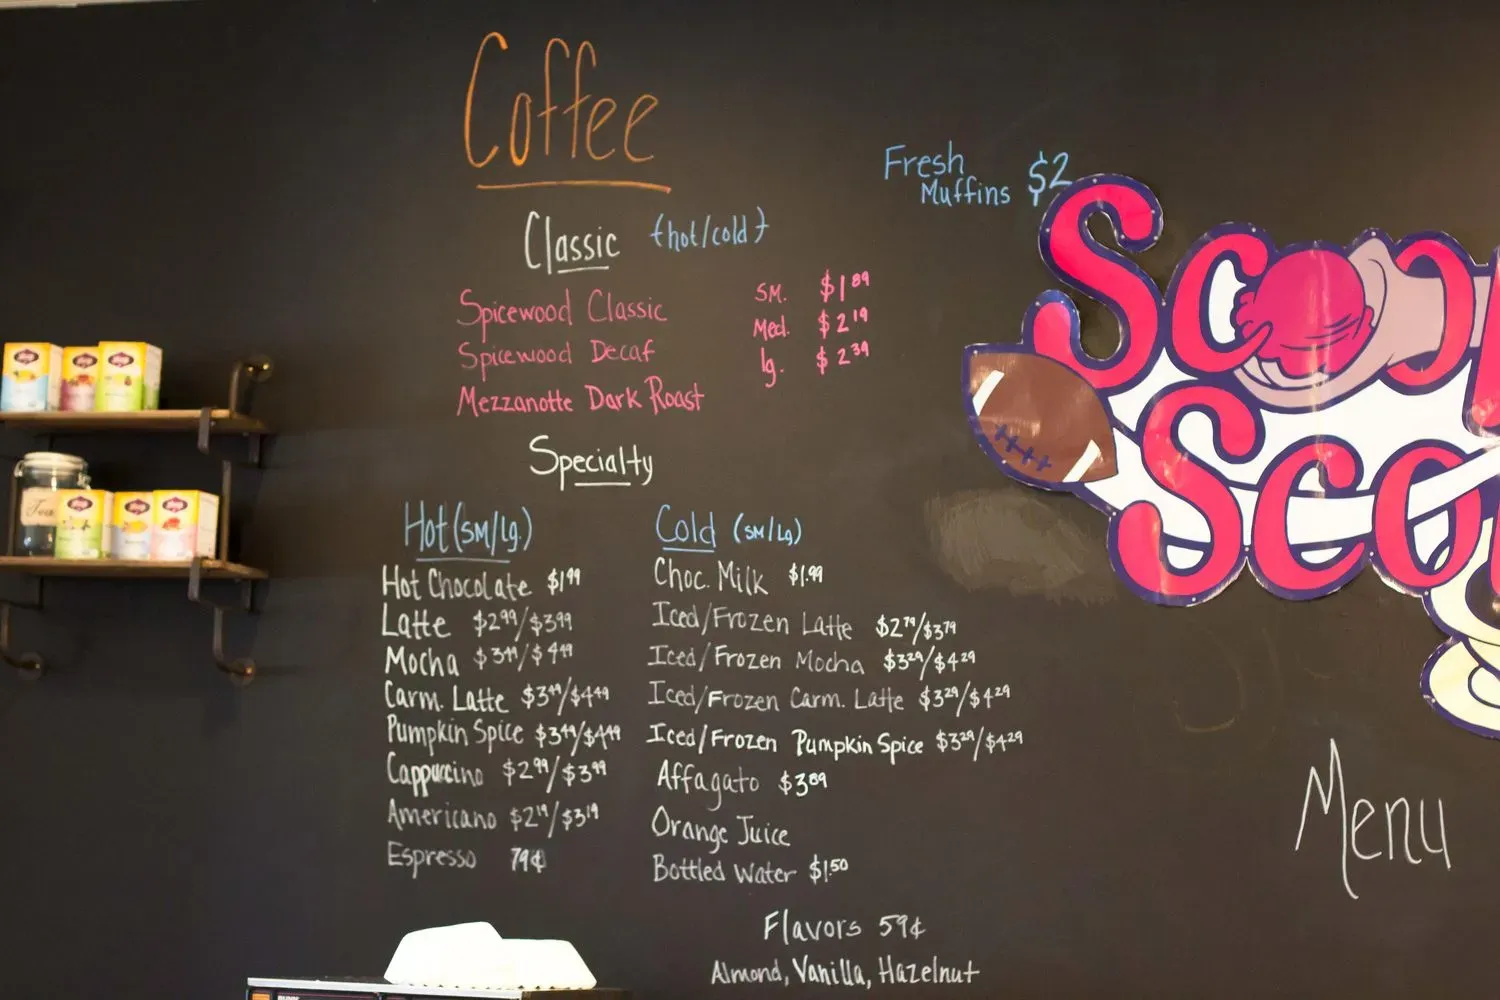 Coffee
Classic {hot/cold}
Spicewood Classic SM. $1.89
Spicewood Decaf Med. $2.19
Mezzanotte Dark Roast lg. $2.39
Specialty
Hot (SM/Lg.)
Hot Chocolate $1.99
Latte $2.99/$3.99
Mocha $3.49/$4.49
Carm. Latte $3.49/$4.49
Pumpkin Spice $3.49/$4.49
Cappuccino $2.99/$3.99
Americano $2.19/$3.19
Espresso 79¢
Cold (SM/Lg)
Choc. Milk $1.99
Iced/Frozen Latte $2.79/$3.79
Iced/Frozen Mocha $3.29/$4.29
Iced/Frozen Carm. Latte $3.29/$4.29
Iced/Frozen Pumpkin Spice $3.29/$4.29
Affagato $3.89
Orange Juice
Bottled Water $1.50
Flavors 59¢
Almond, Vanilla, Hazelnut
Fresh
Muffins $2
Menu
Tea